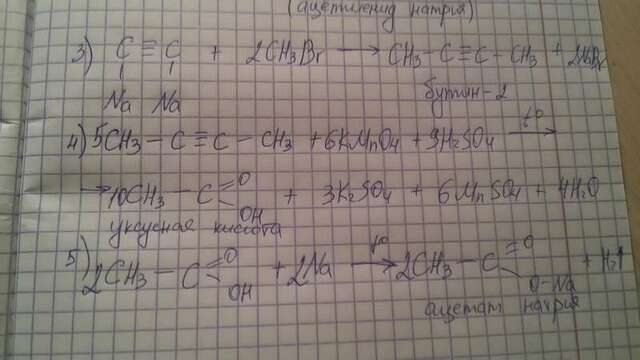 (ацетиленид натрия)
3) C ≡ C + 2CH3Br → CH3 - C ≡ C - CH3 + 2NaBr
Na Na бутин-2
4) 5CH3 - C ≡ C - CH3 + 6KMnO4 + 9H2SO4 t° →
→ 10CH3 - C = O OH + 3K2SO4 + 6MnSO4 + 4H2O
уксусная кислота
5) 2CH3 - C = O OH + 2Na t° → 2CH3 - C = O O-Na + H2↑
ацетат натрия